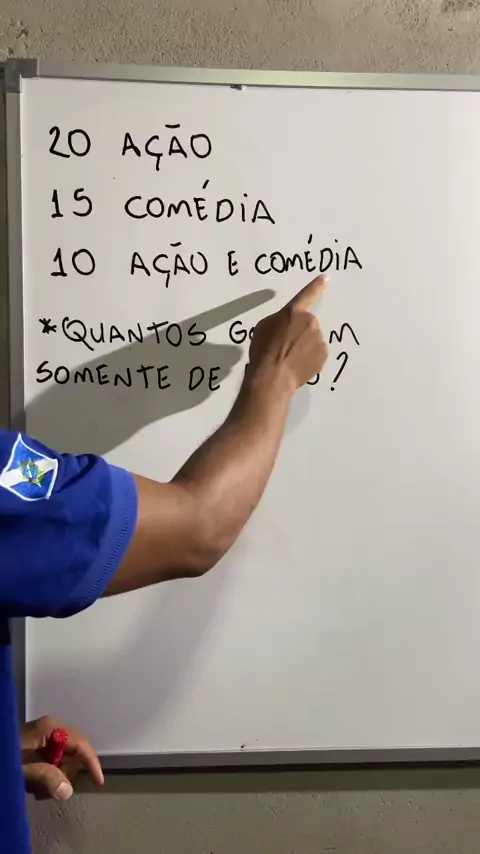 20 AÇÃO
15 COMÉDIA
10 AÇÃO E COMÉDIA
*QUANTOS
SOMENTE DE ?